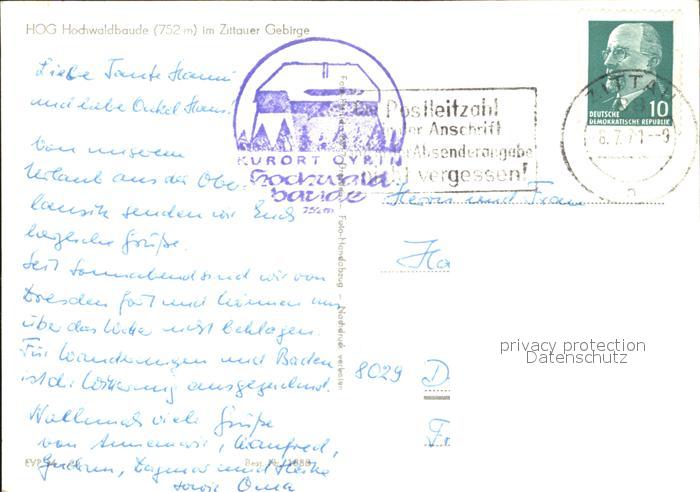 HOG Hochwaldbaude (752 m) im Zittauer Gebirge
Liebe Tante Hanni
und liebe Onkel Hans!
Von unserem
Urlaub aus der Ober-
lausitz senden wir Euch
herzliche Grüße.
Seit Sonnabend sind wir von
Dresden fort und können uns
über das Wetter nicht beklagen.
Für Wanderungen und Baden
ist die Witterung ausgezeichnet.
Nochmals viele Grüße
von Annemarie, Manfred,
Gudrun, Dagmar und Heike
sowie Oma
KURORT OYBIN
Hochwald-
baude
752m
Die Postleitzahl
der Anschrift
Absenderangabe
nicht vergessen!
ZITTAU
6.7.71--9
DEUTSCHE
DEMOKRATISCHE REPUBLIK
10
Foto-Handabzug – Nachdruck verboten
Herrn und Frau
Ha
8029 D
Fr
privacy protection
Datenschutz
EVP
Best. Nr.